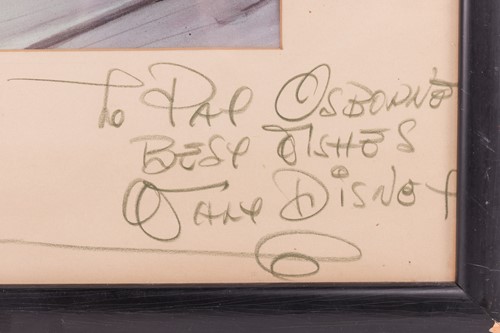 To Pat Osborne
Best Wishes
Walt Disney